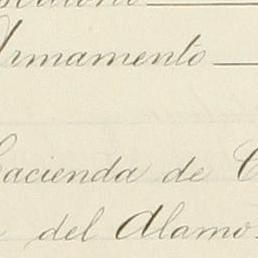 Armamento
Hacienda de
del Alamo